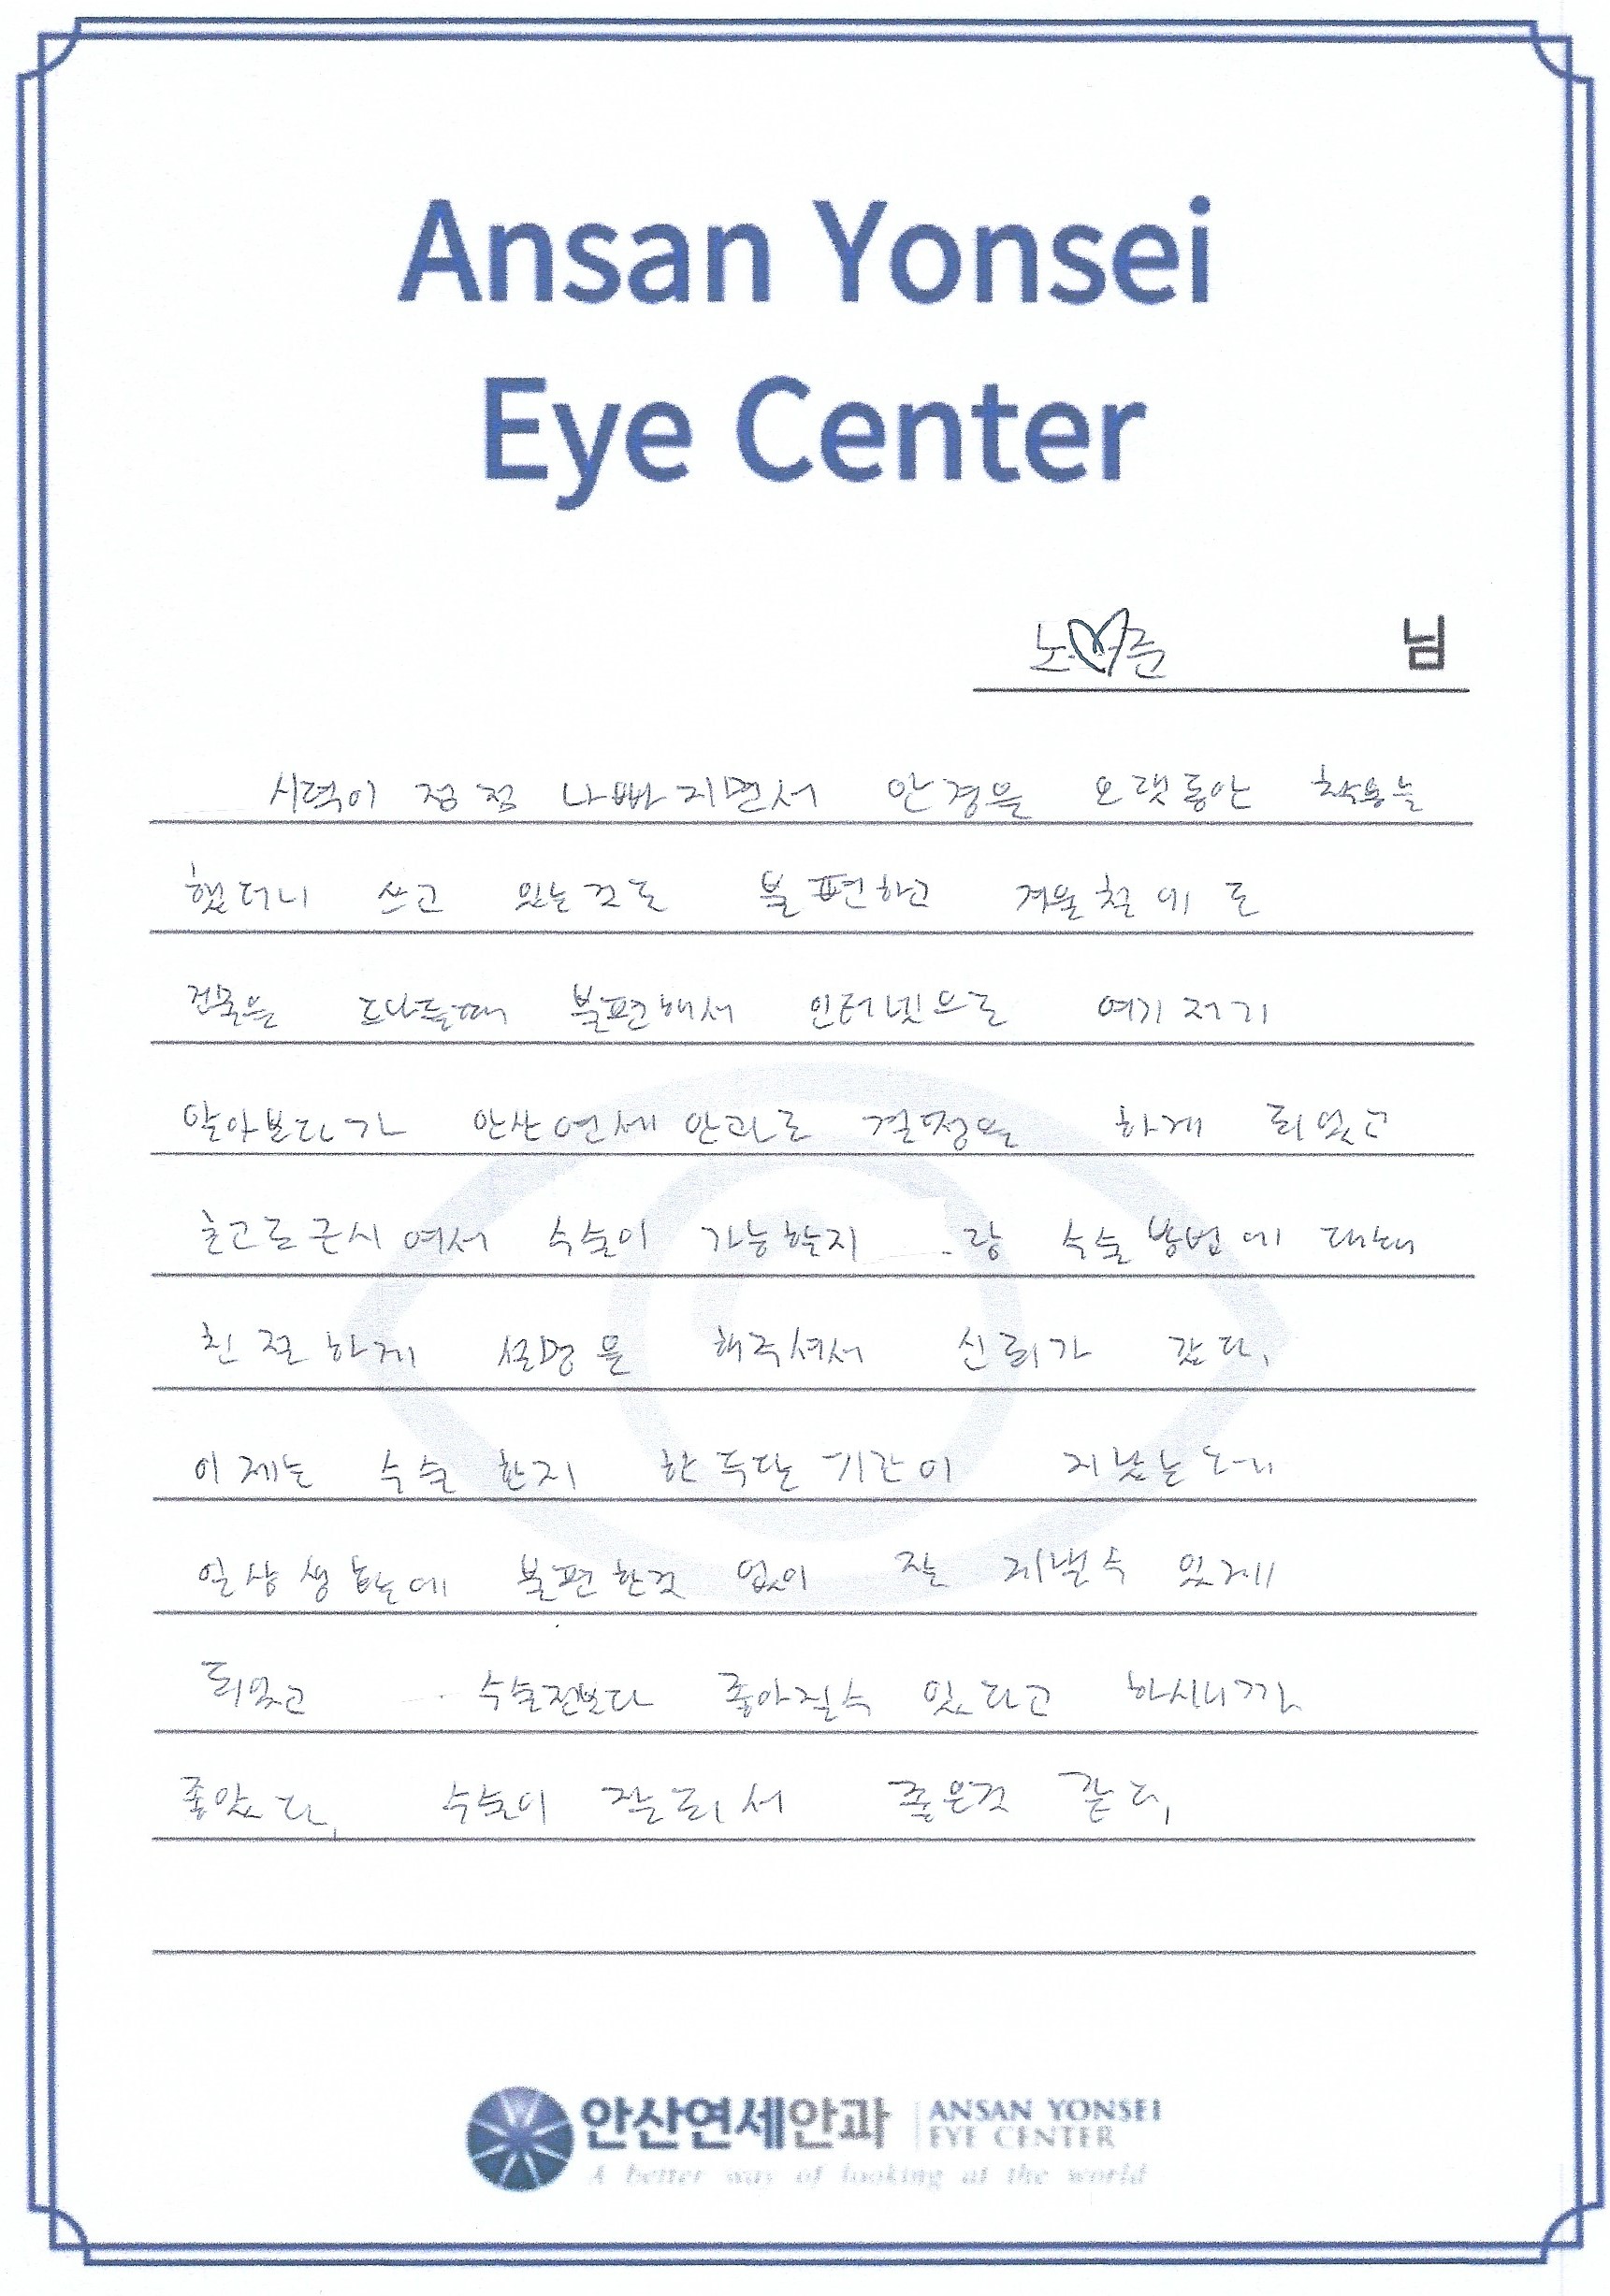 Ansan Yonsei
Eye Center
노♡준 님
시력이 점점 나빠지면서 안경을 오랫동안 착용을
했더니 쓰고 있는것도 불편하고 겨울철에도
건물을 드나들때 불편해서 인터넷으로 여기저기
알아보다가 안산연세안과로 결정을 하게 되었고
초고도근시여서 수술이 가능할지 랑 수술방법에 대해
친절하게 설명을 해주셔서 신뢰가 갔다.
이제는 수술한지 한두달 기간이 지났는데
일상생활에 불편한것 없이 잘 지낼수 있게
되었고 수술전보다 좋아질수 있다고 하시니까
좋았다. 수술이 잘되서 좋은것 같다.
안산연세안과 ANSAN YONSEI
EYE CENTER
A better way of looking at the world